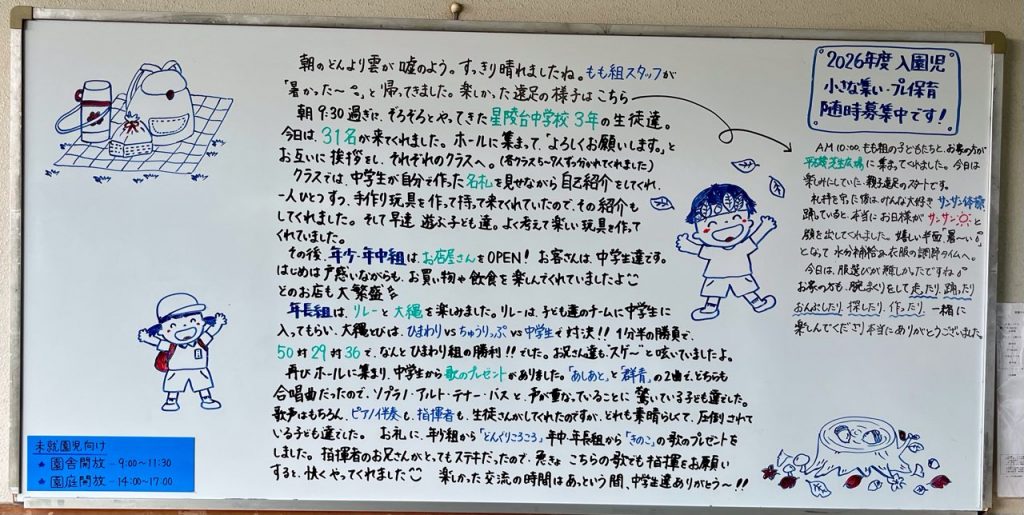 朝のどんより雲が嘘のよう。すっきり晴れましたね。もも組スタッフが
「暑かった〜」と帰ってきました。楽しかった遠足の様子はこちら
朝9:30過ぎに、ぞろぞろとやってきた星陵台中学校3年の生徒達。
今日は、31名が来てくれました。ホールに集まって、「よろしくお願いします。」と
お互いに挨拶をし、それぞれのクラスへ。(各クラス5〜7人ずつ分かれてくれました)
クラスでは、中学生が自分で作った名札を見せながら自己紹介をしてくれ、
一人ひとつずつ、手作り玩具を作って持って来てくれていたので、その紹介も
してくれました。そして早速遊ぶ子ども達。よく考えて楽しい玩具を作って
くれていました。
その後、年少・年中組は、お店屋さんをOPEN! お客さんは、中学生達です。
はじめは戸惑いながらも、お買い物や飲食を楽しんでくれていましたよ
どのお店も大繁盛
年長組は、リレーと大縄を楽しみました。リレーは、子ども達のチームに中学生に
入ってもらい、大縄とびは、ひまわりvsちゅうりっぷvs中学生で対決!! 1分半の勝負で、
50対29対36で、なんとひまわり組の勝利!!でした。お兄さん達もスゲ〜と呟いていましたよ。
再びホールに集まり、中学生から歌のプレゼントがありました。「あしあと」と「群青」の2曲で、どちらも
合唱曲だったので、ソプラノ・アルト・テナー・バスと、声が重なっていることに驚いている子ども達でした。
歌声はもちろん、ピアノ伴奏も、指揮者も、生徒さんがしてくれたのですが、どれも素晴らしくて、圧倒されて
いる子ども達でした。お礼に、年少組から「どんぐりころころ」年中・年長組から「きのこ」の歌のプレゼントを
しました。指揮者のお兄さんがとってもステキだったので、急きょこちらの歌でも指揮をお願い
すると、快くやってくれました 楽しかった交流の時間はあっという間、中学生達ありがとう〜!!
2026年度入園児
小さな集い・プレ保育
随時募集中です!
AM10:00、もも組の子どもたちと、お家の方が
芝生広場に集まってくれました。今日は
楽しみにしていた、親子遠足のスタートです。
札持を守った後は、みんな大好きサンサン体操。
踊っていると、本当にお日様がサンサンと
顔を出してくれました。嬉しい半面「暑〜い」
となって水分補給や衣服の調節タイムへ。
今日は、服選びが難しかったですね
お家の方も、腕まくりをして走ったり、踊ったり
おんぶしたり、探したり、作ったり、一緒に
楽しんでくださり本当にありがとうございました。
未就園児向け
★園舎開放 - 9:00〜11:30
★園庭開放 - 14:00〜17:00